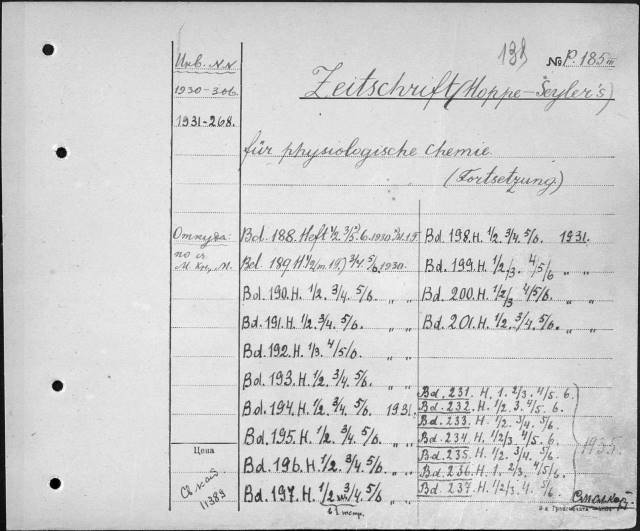 138 № P. 185 III
Инв. N.N.
1930-306.
1931-268.
Zeitschrift (Hoppe-Seyler's)
für physiologische Chemie
(Fortsetzung)
Откуда:
Bd. 188. Heft 1/2 3/5. 6. 1930
Bd. 189 H. 1/2 3/4. 5/6. 1930.
Bd. 190. H. 1/2. 3/4. 5/6. „ „
Bd. 191. H. 1/2. 3/4. 5/6. „ „
Bd. 192. H. 1/3. 4/5/6. „ „
Bd. 193. H. 1/2. 3/4. 5/6. „ „
Bd. 194. H. 1/2. 3/4. 5/6. 1931.
Bd. 195. H. 1/2. 3/4. 5/6. „ „
Bd. 196. H. 1/2. 3/4. 5/6. „ „
Bd. 197. H. 1/2 3/4. 5/6. „ „
Bd. 198. H. 1/2. 3/4. 5/6. 1931.
Bd. 199. H. 1/2/3. 4/5/6 „ „
Bd. 200. H. 1/2/3 4/5/6. „ „
Bd. 201. H. 1/2. 3/4. 5/6. „ „
Bd. 231. H. 1. 2/3. 4/5. 6.
Bd. 232. H. 1/2 3. 4/5. 6.
Bd. 233. H. 1/2. 3/4. 5/6.
Bd. 234. H. 1/2/3. 4/5. 6.
Bd. 235. H. 1/2. 3/4. 5/6.
Bd. 236. H. 1. 2/3. 4/5/6.
Bd. 237. H. 1/2/3. 4. 5/6.
1935.
Цена
11389